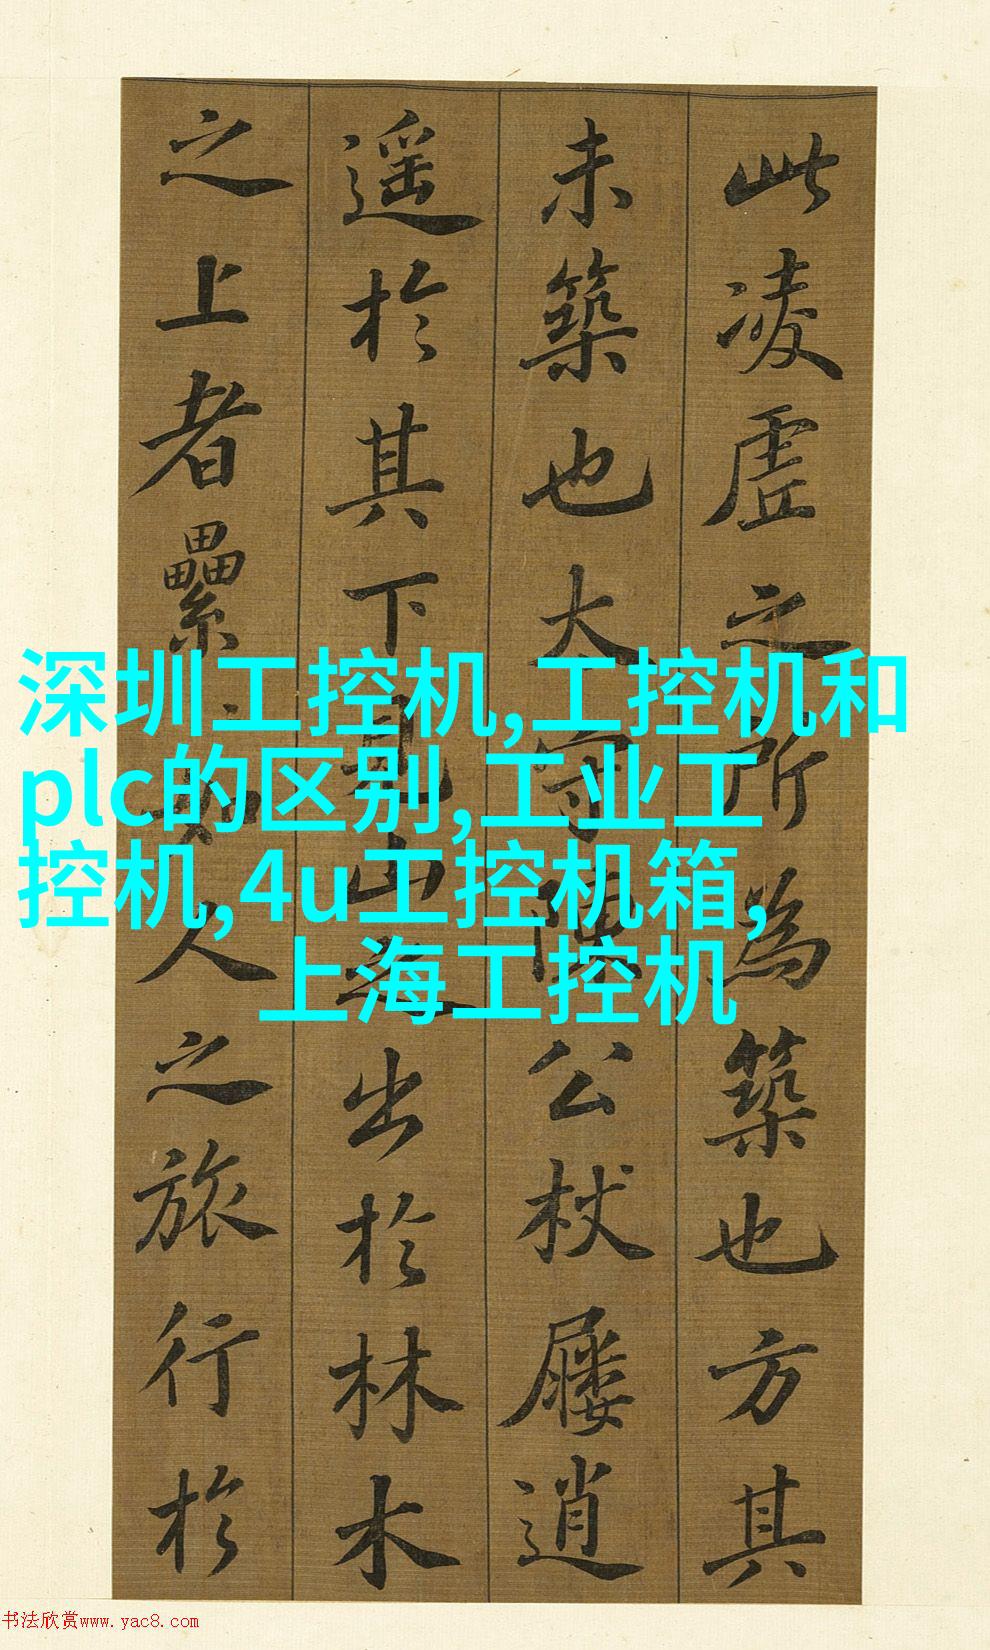 此凌虛之所為築也方其
未築也太守陳公杖屨逍
遥於其下見山之出於林木
之上者纍々如人之旅行於
深圳工控机,工控机和
plc的区别,工业工
控机,4u工控机箱,
上海工控机
书法欣赏www.yac8.com